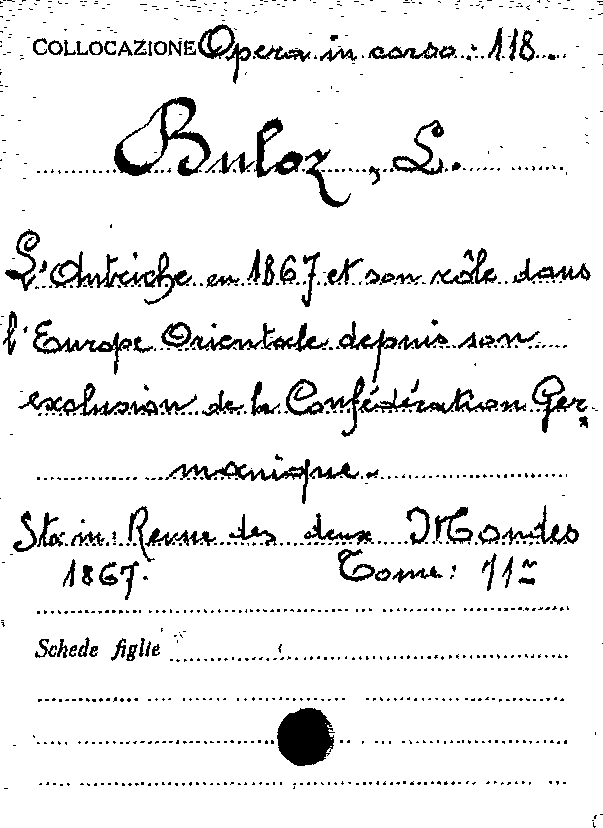 COLLOCAZIONE Opera in corso: 118.
Buloz, L.
L'Autriche en 1867 et son rôle dans
l'Europe Orientale depuis son
exclusion de la Confédération Ger
manique.
Sta in: Revue des deux Mondes
1867. Tome: 71m
Schede figlie